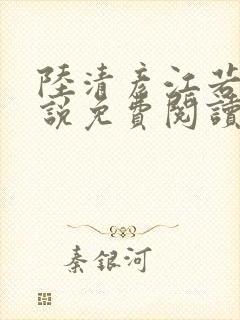 陸清彥江若
說免費閱讀
秦銀河